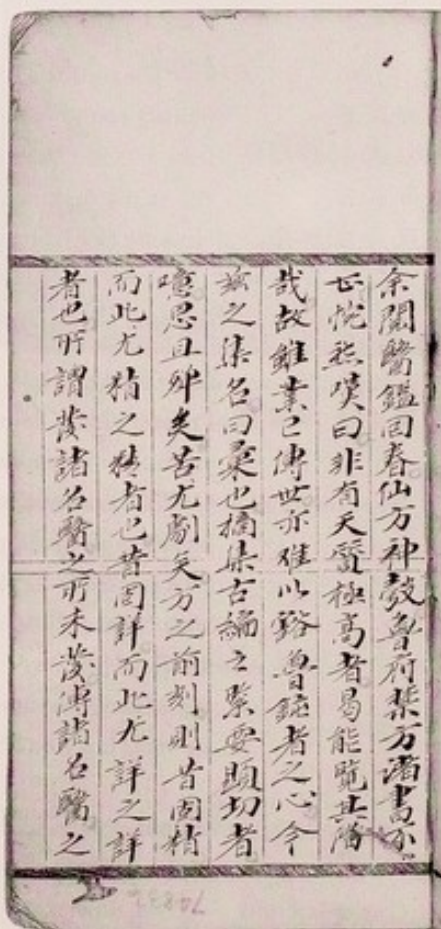 余閱醫鑑回春仙方神彀魯府禁方濟書不
恍然嘆曰非有天資極高者曷能覽其
哉故雖業已傳世亦難以谿魯鈍者之心今
茲之集名曰彙也摘集古編之緊要顯切者
噫思且殫矣苦尤劇矣方之前刻則昔固精
而此尤精之精者也昔固詳而此尤詳之詳
者也所謂發諸名醫之所未發傳諸名醫之